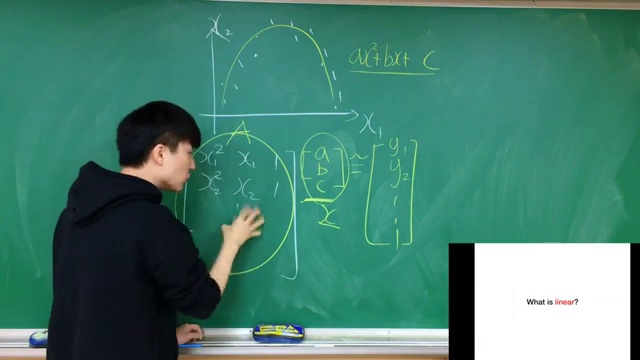 x₂
ax²+bx+c
x₁
A
x₁² x₁ 1
x₂² x₂ 1
a
b
c
x
≃
y₁
y₂
What is linear?